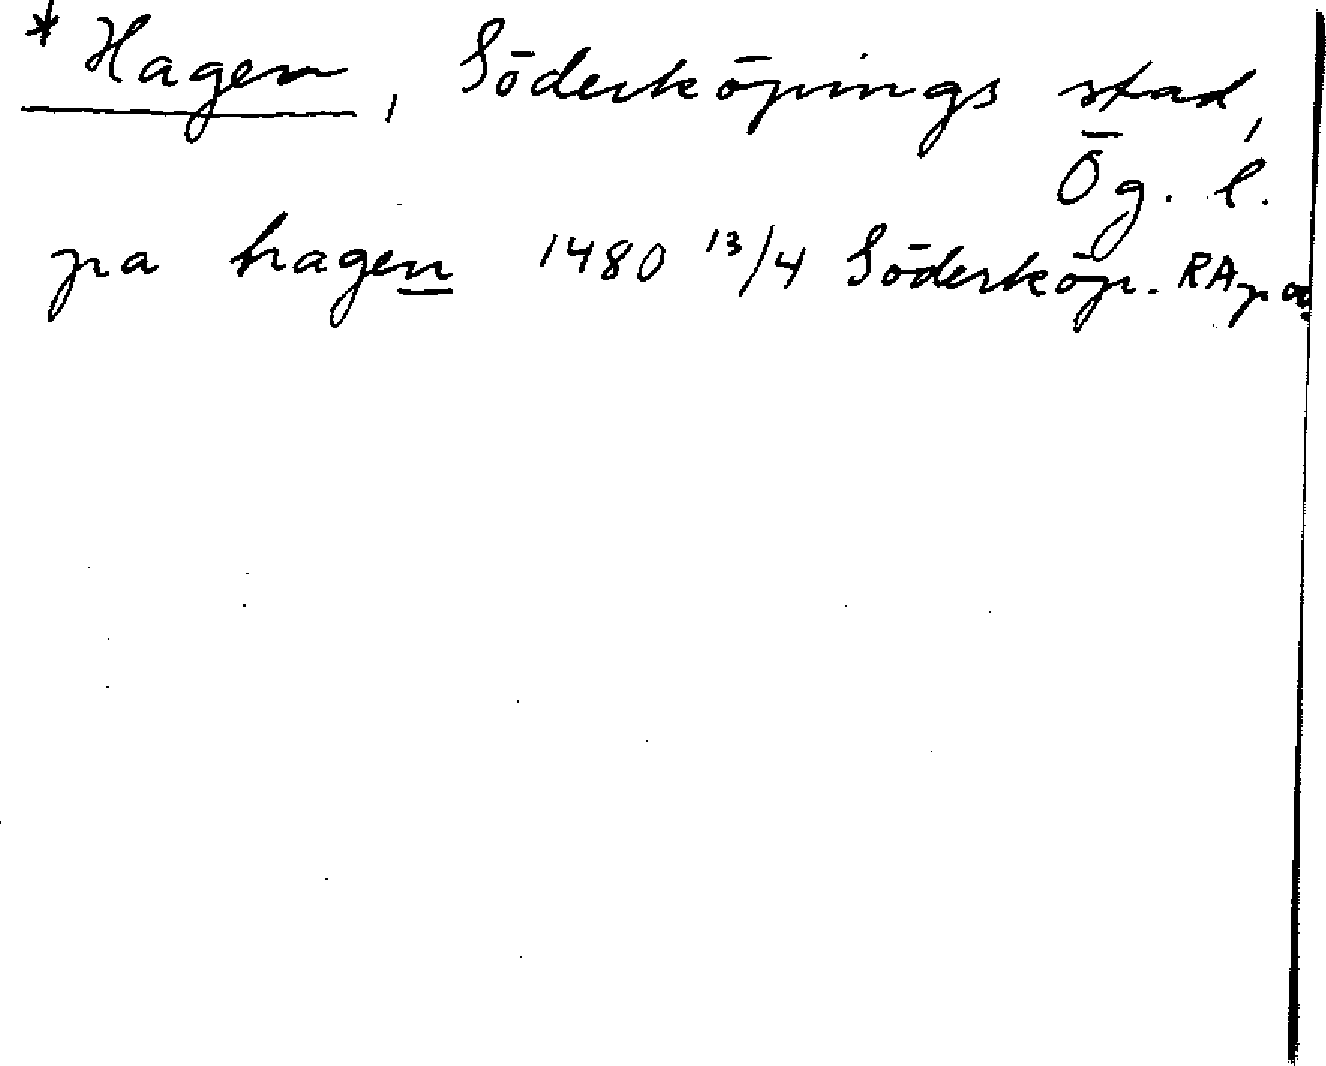 * Hagen, Söderköpings stad,
Ög. l.
pa hagen 1480 13/4 Söderköp. RAp a.